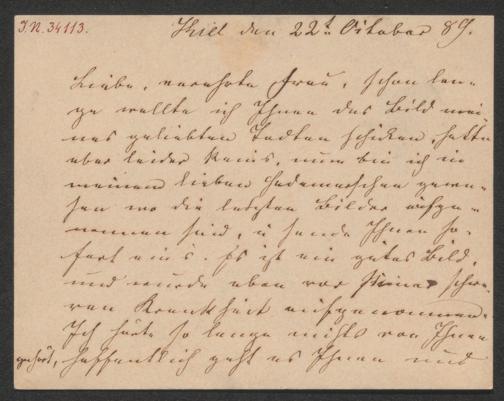 I.N. 34113.
Kiel den 22t October 89.
Liebe, verehrte Frau, schon lan-
ge wollte ich Ihnen das Bild mei-
nes geliebten Todten schicken, hatte
aber leider keins, nun bin ich in
meinem lieben Hademarschen gewe-
sen wo die letzten Bilder aufge-
nommen sind, u sende Ihnen so-
fort eins. Es ist ein gutes Bild,
und wurde eben vor seiner schwe-
ren Krankheit aufgenommen.
Ich hörte so lange nichts von Ihnen
gehört, hoffentlich geht es Ihnen und